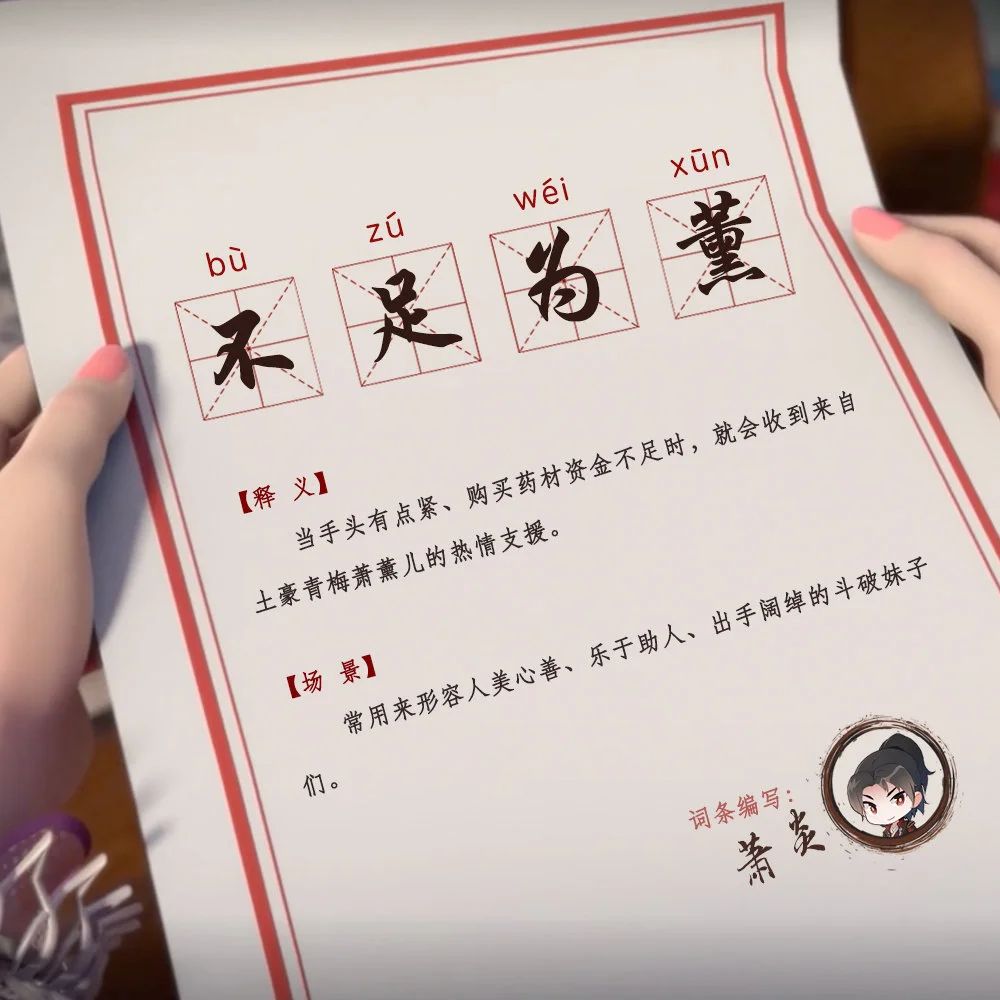 bù zú wéi xūn
不足为薰
【释 义】
当手头有点紧、购买药材资金不足时，就会收到来自
土豪青梅萧薰儿的热情支援。
【场 景】
常用来形容人美心善、乐于助人、出手阔绰的斗破妹子
们。
词条编写：
萧炎